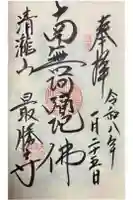 奉拝
令和八年
一月二十五日
南無阿弥陀佛
清瀧山
最勝寺